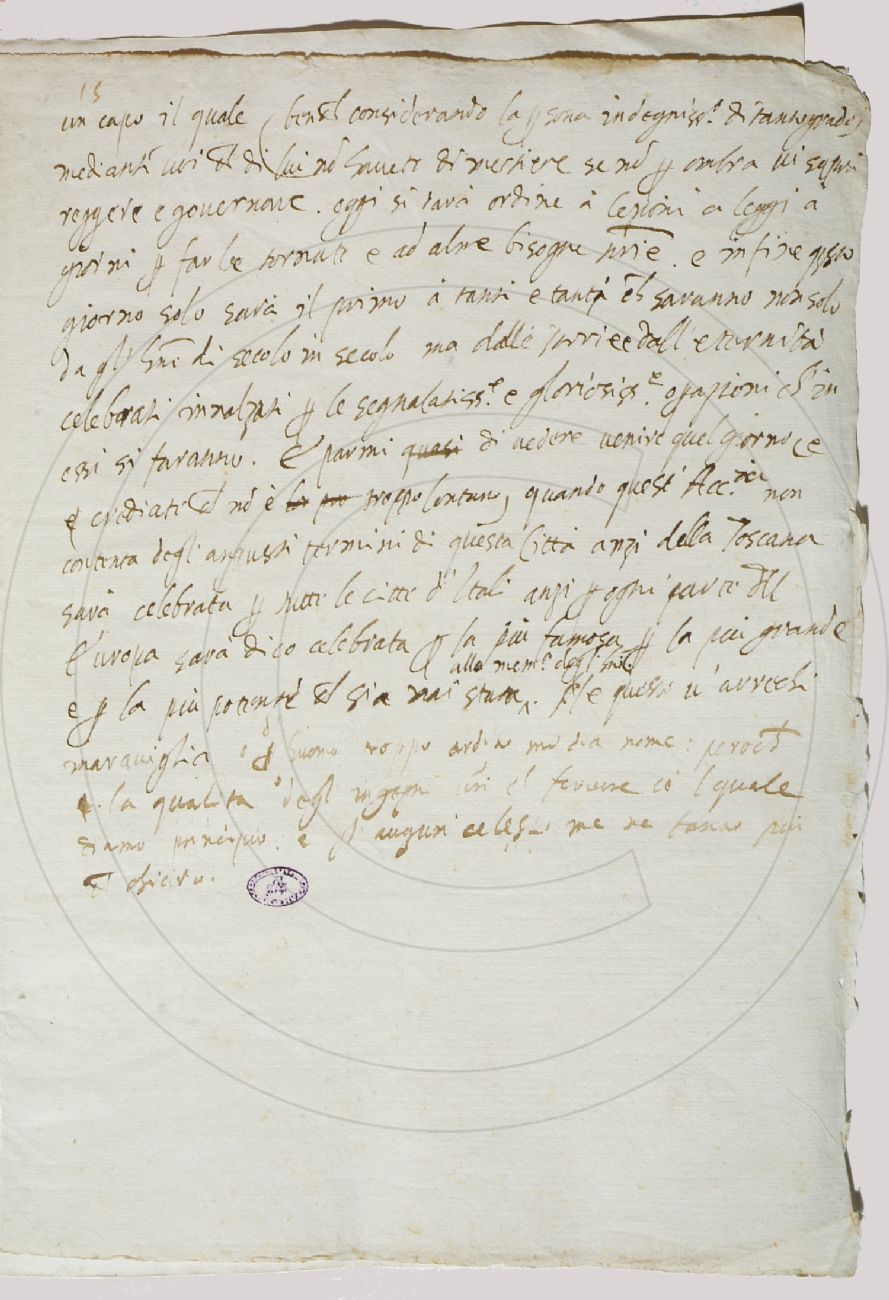 15
un capo il quale (benche considerando la psona indegniss.a di tanto grado,
mediante che di lui nō havete di mestiere se nō p ombra vi sapria
reggere e governare. oggi si darà ordine à lezioni à leggi à
giorni p far le tornate e ad altre bisogne e in fine qsto
giorno solo sarà il primo à tanti e tanti che saranno non solo
da gl' di secolo in secolo ma dalle e dall' eternità
celebrati innalzati p le segnalatiss.e e gloriosiss.e opazioni ch' in
essi si faranno. E parmi quasi di vedere venire quel giorno, e
crediate che nō è troppo lontano, quando quest' Acc.mia non
contenta degl' angusti termini di questa Città anzi della Toscana
sarà celebrata p tutte le citte d' Itali anzi p ogni parte dell
Europa sarà dico celebrata p la più famosa p la più grande
alla mem.a degl'
e p la più potente che sia mai stata. Ne questo v' arrechi
maraviglia o huomo troppo ardito mi dia nome: peroche
la qualità degl ingegni e' l fervore cō 'l quale
diamo principio. e gl' auguri celesti me ne fanno più
che chiaro.